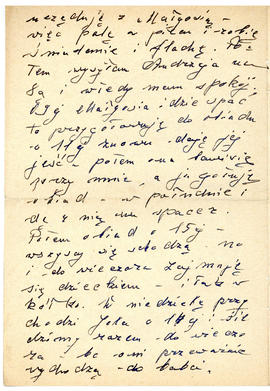 urzęduję z Małgosią –
więc palę w piecu i robię
śniadanie i flachę.
Tem wysyłam Andrzeja na
8ą i wtedy mam spokój,
Małgosia idzie spać
to przygotowuję do obiadu
o 11ej znowu daję jej
jeść – potem ona bawi się
przy mnie, a ja gotuję
obiad – w południe i
dę z nią na spacer.
Potem obiad o 15ej –
wszyscy się schodzą, no
i do wieczora zajmuję
się dzieckiem – i tak w
kółko. W niedzielę przy
chodzi Jola o 11ej i
dzimy razem – do wieczo
ra bo oni przeważnie
wychodzą – do babci.